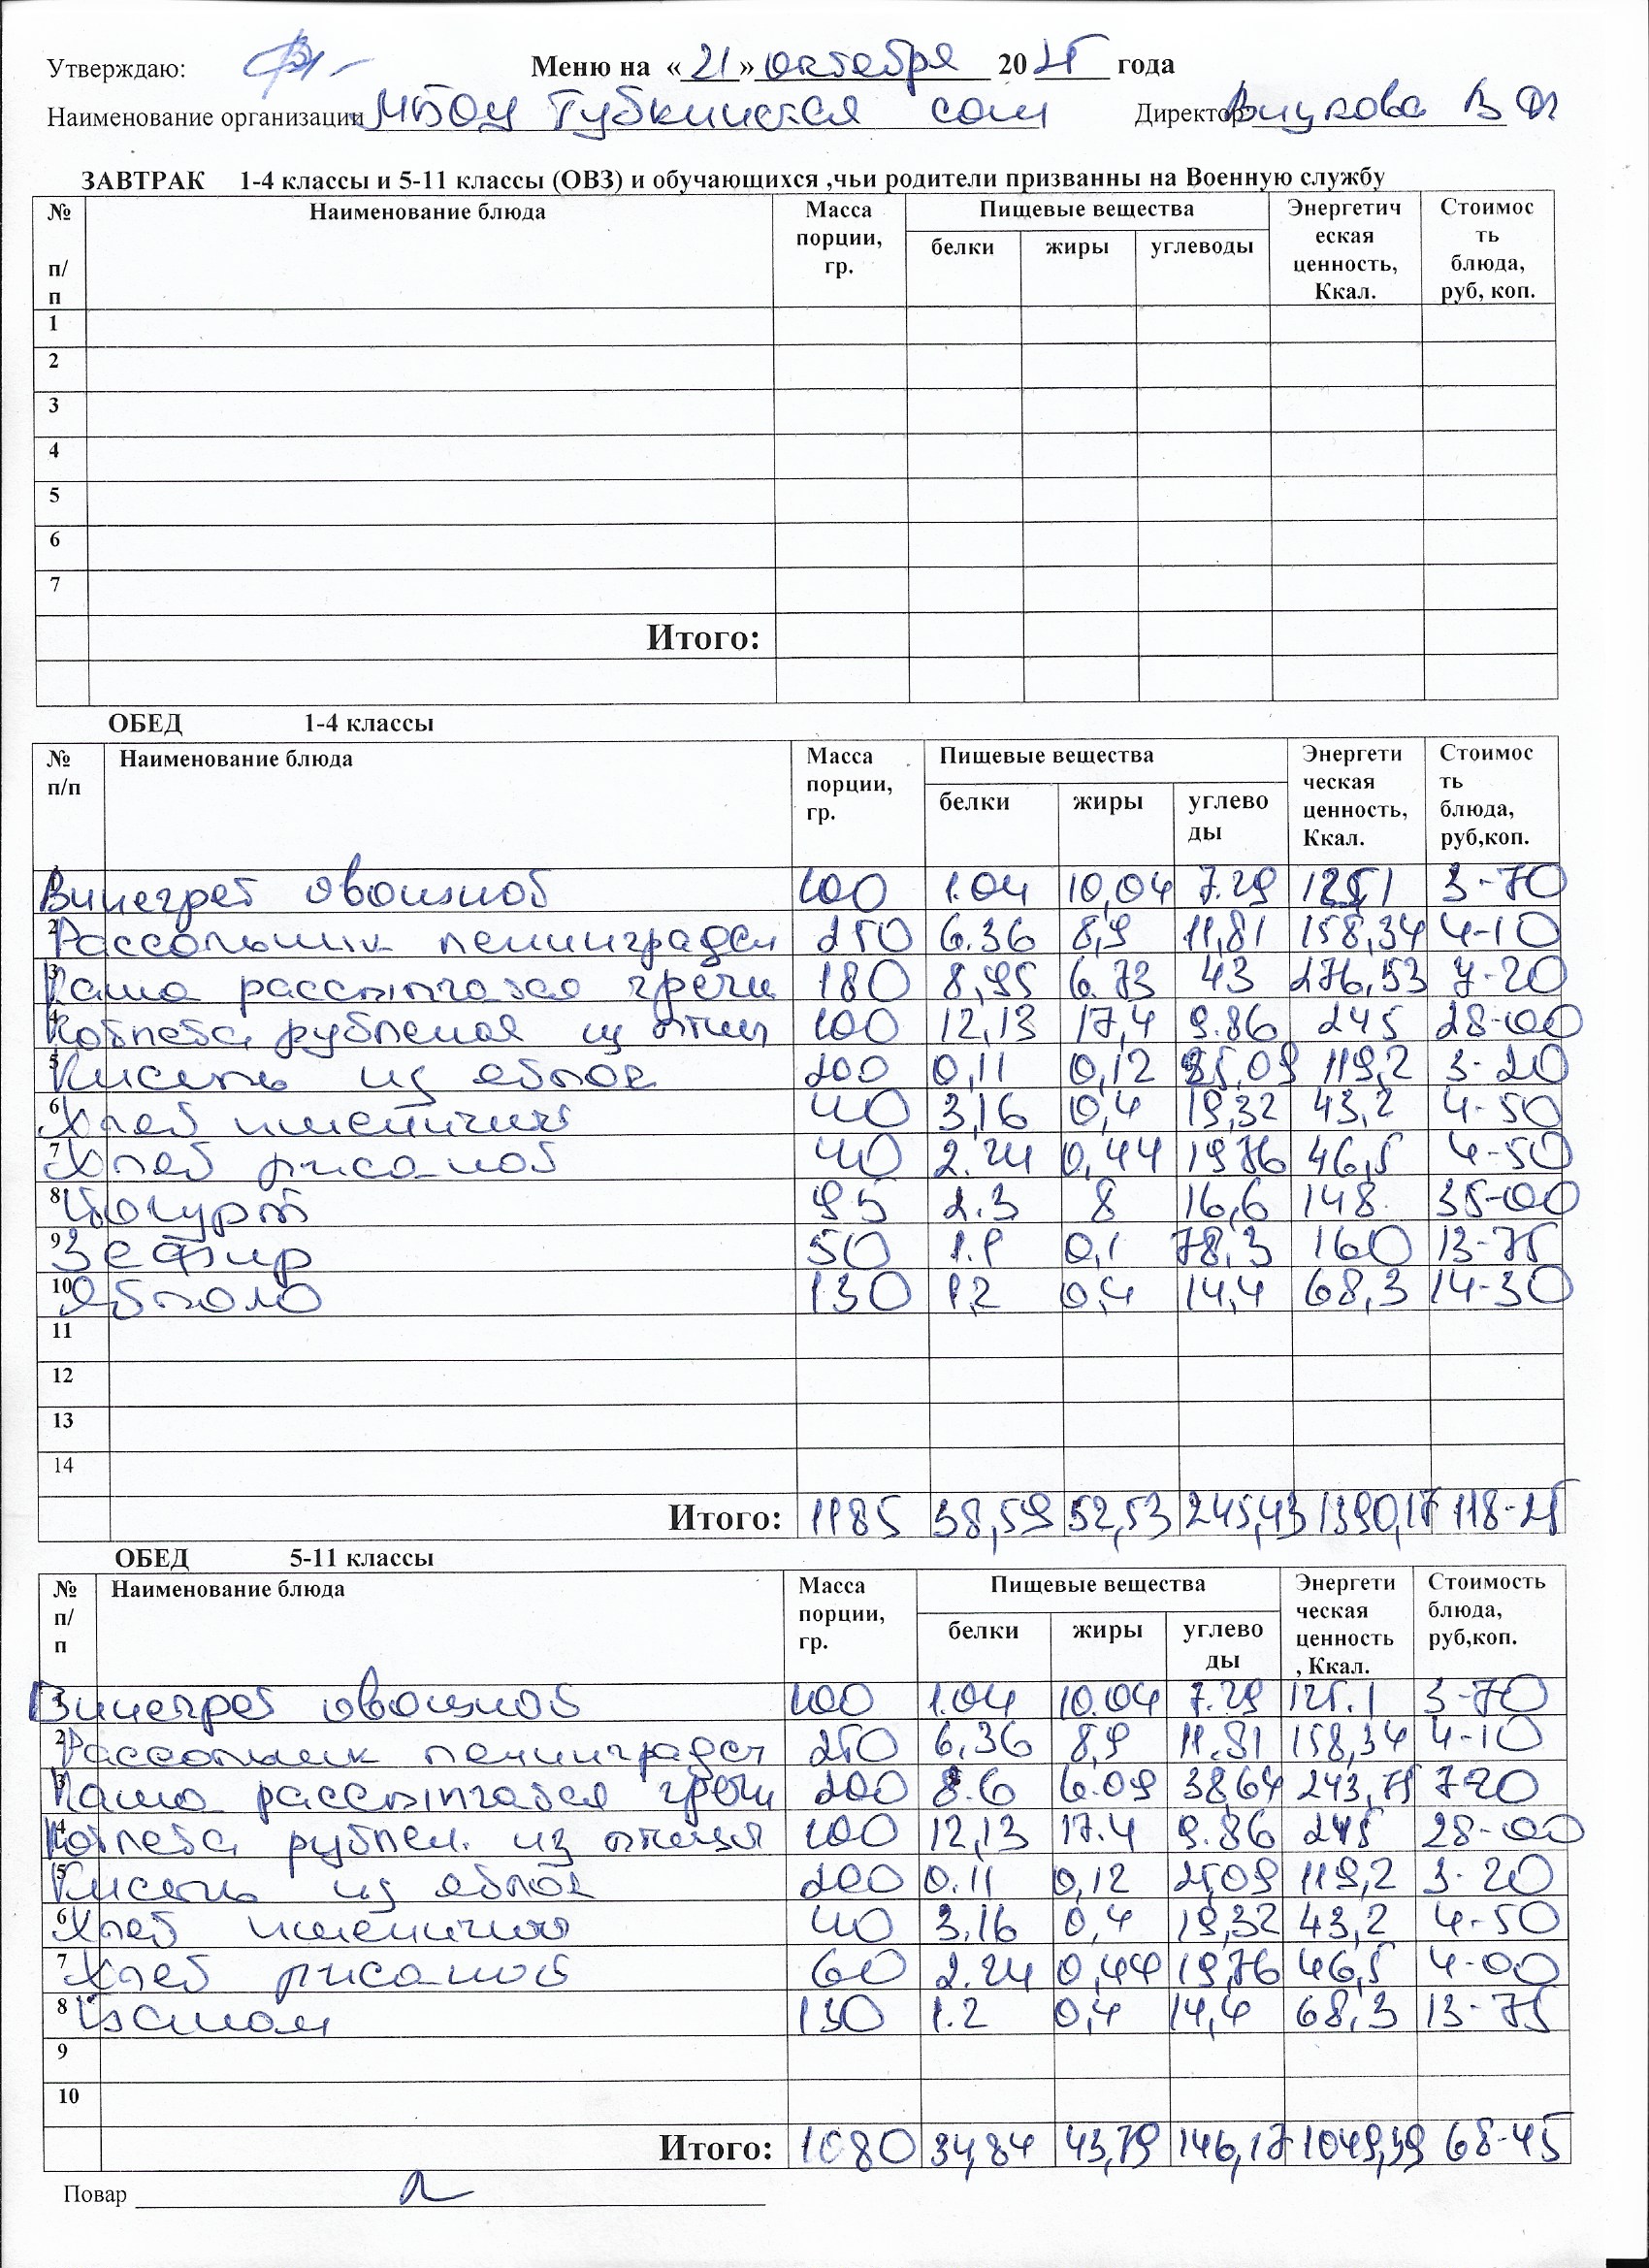 Утверждаю: Меню на «21» октября 2025 года
Наименование организации МБОУ Губкинская сош Директор В
ЗАВТРАК 1-4 классы и 5-11 классы (ОВЗ) и обучающихся ,чьи родители призванны на Военную службу
№ п/п Наименование блюда Масса порции, гр. Пищевые вещества Энергетическая ценность, Ккал. Стоимость блюда, руб, коп.
белки жиры углеводы
1
2
3
4
5
6
7
Итого:
ОБЕД 1-4 классы
№ п/п Наименование блюда Масса порции, гр. Пищевые вещества Энергетическая ценность, Ккал. Стоимость блюда, руб,коп.
белки жиры углеводы
1 Винегрет овощной 100 1.04 10,04 7.29 125,1 3-70
2 Рассольник ленинградск 250 6.36 8,9 11,81 158,34 4-10
3 Каша рассыпчатая гречн 180 8,95 6.73 43 276,53 7-20
4 Котлета рубленая из птиц 100 12,13 17,4 9.86 245 28-00
5 Кисель из яблок 200 0,11 0,12 25,09 119,2 3-20
6 Хлеб пшеничный 40 3,16 0,4 19,32 43,2 4-50
7 Хлеб ржаной 40 2.24 0,44 19,76 46,5 4-50
8 Йогурт 95 2.3 8 16,6 148 35-00
9 Зефир 50 1.1 0,1 78,3 160 13-75
10 Яблоко 130 1,2 0,4 14,4 68,3 14-30
11
12
13
14
Итого: 1185 38,59 52,53 245,43 1390,17 118-25
ОБЕД 5-11 классы
№ п/п Наименование блюда Масса порции, гр. Пищевые вещества Энергетическая ценность, Ккал. Стоимость блюда, руб,коп.
белки жиры углеводы
1 Винегрет овощной 100 1.04 10.04 7.29 125.1 3-70
2 Рассольник ленинградск 250 6,36 8,9 11.81 158,34 4-10
3 Каша рассыпчатая гречн 200 8.6 6.09 38,64 243,75 7-20
4 Котлета рублен. из птицы 100 12,13 17.4 9.86 245 28-00
5 Кисель из яблок 200 0.11 0,12 25,09 119,2 3-20
6 Хлеб пшеничный 40 3.16 0,4 19,32 43,2 4-50
7 Хлеб ржаной 60 2.24 0,44 19,76 46,5 4-00
8 130 1.2 0,4 14,4 68,3 13-75
9
10
Итого: 1080 34,84 43,79 146,17 1049,39 68-45
Повар